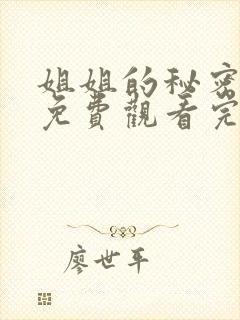 姐姐的秘密
免費觀看完
廖世平